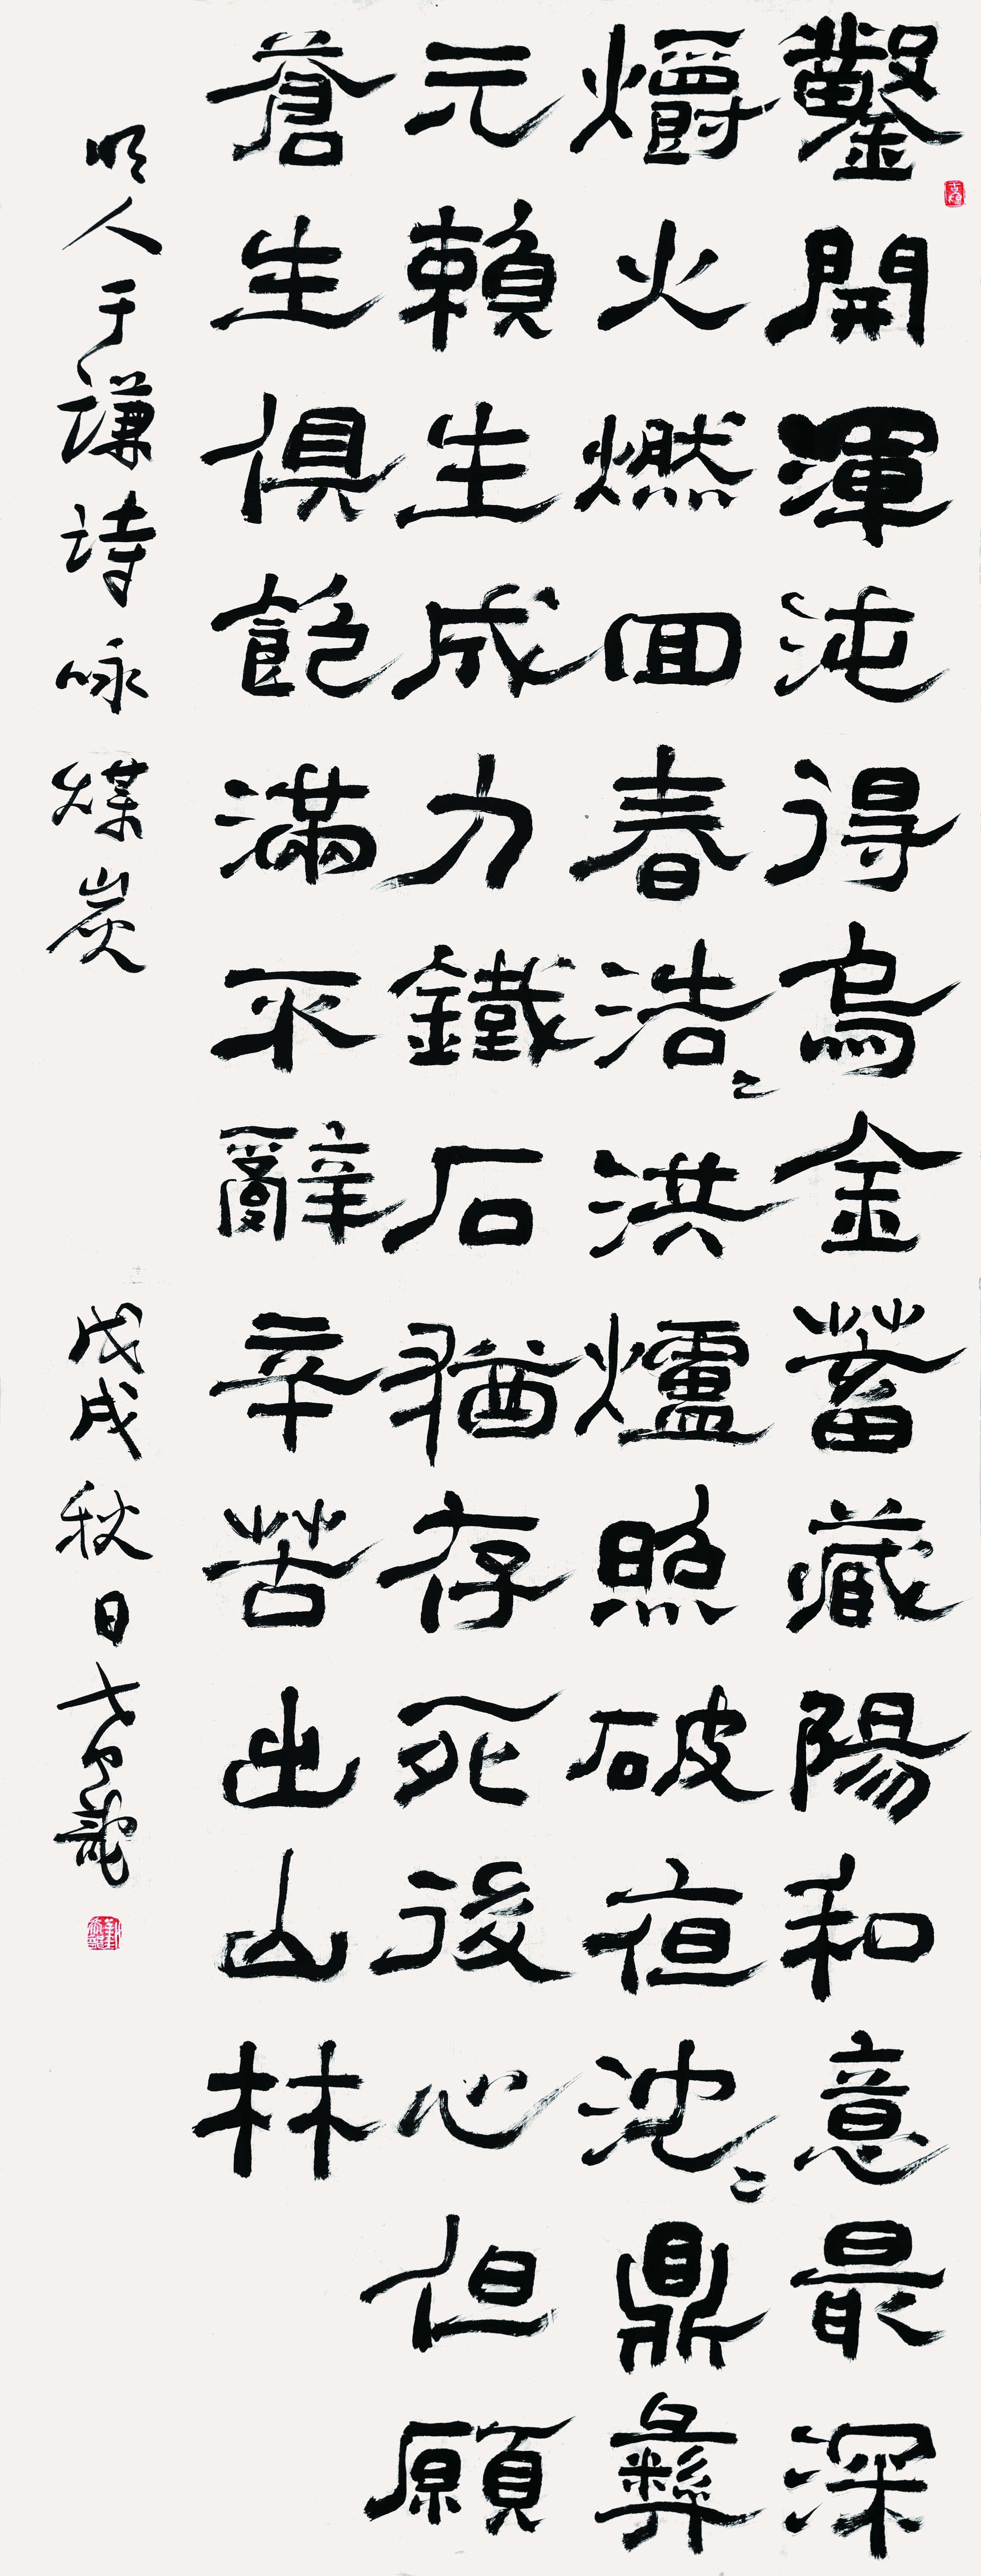 鑿開渾沌得烏金蓄藏陽和意最深
爝火燃回春浩〻洪爐照破夜沈〻鼎彝
元賴生成力鐵石猶存死後心但願
蒼生俱飽滿不辭辛苦出山林
明人于謙詩咏煤炭 戊戌秋日